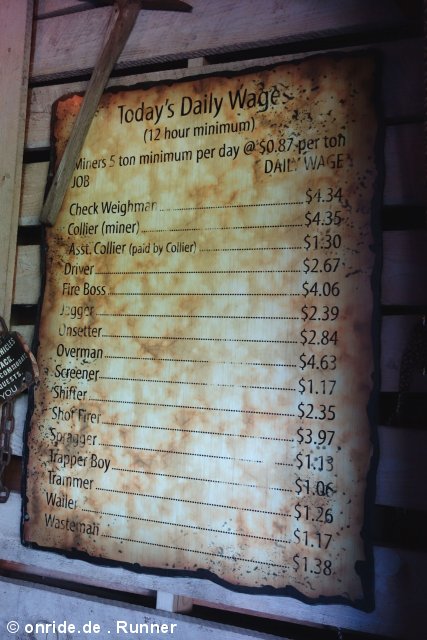 Today's Daily Wage
(12 hour minimum)
Miners 5 ton minimum per day @ $0.87 per ton
JOB DAILY WAGE
Check Weighman $4.34
Collier (miner) $4.35
Asst. Collier (paid by Collier) $1.30
Driver $2.67
Fire Boss $4.06
$2.39
Onsetter $2.84
Overman $4.63
Screener $1.17
Shiffer $2.35
Shot Firer $3.97
Spragger $1.13
Trapper Boy $1.06
Trammer $1.26
Wailer $1.17
Wasteman $1.38
© onride.de . Runner